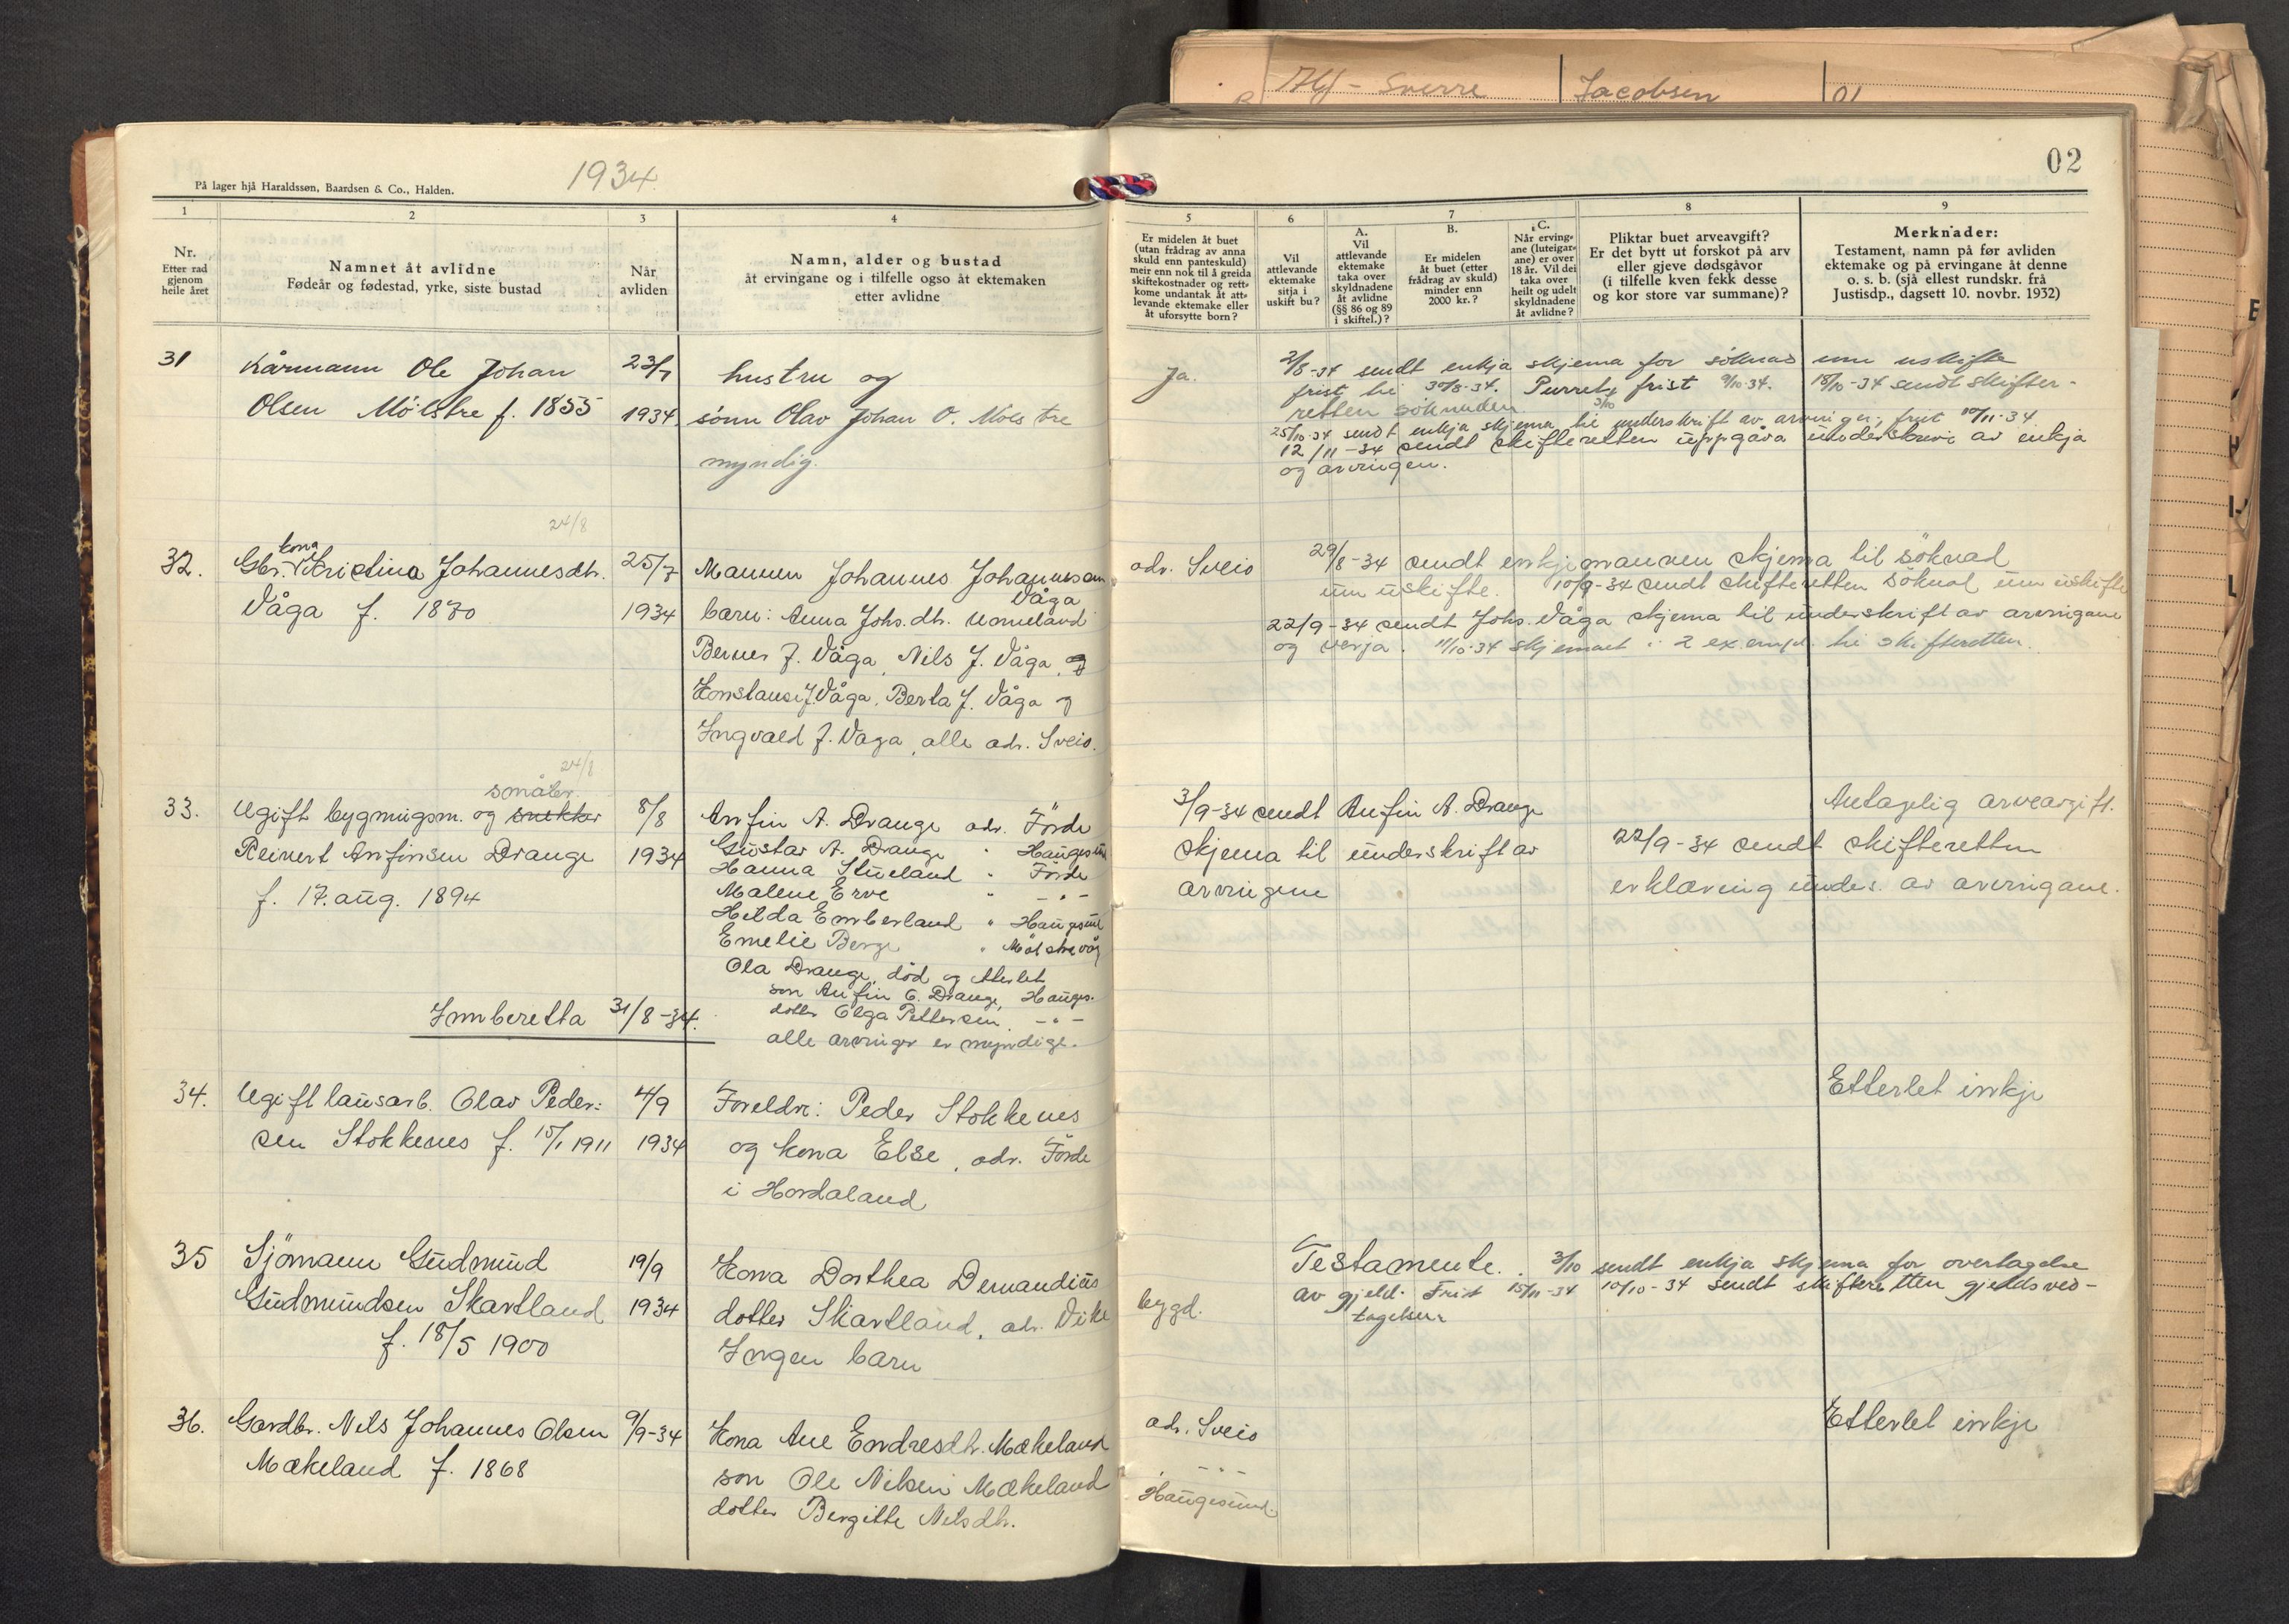 Alf - Sverre Jacobsen
På lager hjå Haraldssøn, Baardsen & Co., Halden.
1934
02
1
2
3
4
5
6
7
8
9
Nr.
Etter rad
gjenom
heile året
Namnet åt avlidne
Fødeår og fødestad, yrke, siste bustad
Når
avliden
Namn, alder og bustad
åt ervingane og i tilfelle ogso åt ektemaken
etter avlidne
Er midelen åt buet
(utan frådrag av anna
skuld enn panteskuld)
meir enn nok til å greida
skiftekostnader og rett-
kome undantak åt att-
levande ektemake eller
åt uforsytte born?
Vil
attlevande
ektemake
sitja i
uskift bu?
A.
Vil
attlevande
ektemake
taka over
skyldnadene
åt avlidne
(§§ 86 og 89
i skiftel.)?
B.
Er midelen
åt buet (etter
frådrag av skuld)
minder enn
2000 kr.?
C.
Når erving-
ane (luteigar-
ane) er over
18 år. Vil dei
taka over
heilt og udelt
skyldnadene
åt avlidne?
Pliktar buet arveavgift?
Er det bytt ut forskot på arv
eller gjeve dødsgåvor
(i tilfelle kven fekk desse
og kor store var summane)?
Merknader:
Testament, namn på før avliden
ektemake og på ervingane åt denne
o. s. b. (sjå ellest rundskr. frå
Justisdp., dagsett 10. novbr. 1932)
31
Kårmann Ole Johan
Olsen Mölstre f. 1855
23/7
1934
hustru og
sönn Olav Johan O. Mölstre
myndig.
Ja.
2/8-34 sendt enkja skjema for söknad um uskifte
frist til 30/8-34. Purret frist 9/10-34. 18/10-34 sendt skifte-
retten söknaden.
25/10-34 sendt enkja skjema til underskrift av arvinger, frist 10/11-34
12/11-34 sendt skifteretten uppgåva underskrevi av enkja
og arvingen.
24/8
32.
Gbr. kona Kristina Johannesdtr.
Våga f. 1870
25/7
1934
Mannen Johannes Johannesen
Våga
barn: Anna Johs.dtr.
Berner J. Våga, Nils J. Våga, og
J. Våga, Berta J. Våga og
Ingvald J. Våga, alle adr. Sveio.
adr. Sveio
29/8-34 sendt enkjemannen skjema til söknad
um uskifte. 10/9-34 sendt skifteretten söknad um uskifte
22/9-34 sendt Johs. Våga skjema til underskrift av arvingane
og verja. 11/10-34 skjemaet i 2 exempl. til skifteretten.
24/8
småbr.
33.
Ugift bygningsm. og snekker
Reinert Anfinsen Drange
f. 17. aug. 1894
8/8
1934
Anfin A. Drange adr. Förde
Gustav A. Drange " Haugesund
Hanna Stueland " Förde
Malene Erve " - " -
Hilda Emberland " Haugesund
Emelie Berge " Mölstrevåg
Ola Drange, död og etterlet
son Anfin O. Drange, Hauges.
dotter Olga Pettersen, - " -
alle arvinger er myndige.
3/9-34 sendt Anfin A. Drange
skjema til underskrift av
arvingene
Antagelig arveavgift.
22/9-34 sendt skifteretten
erklæring unders. av arvingane.
Innberetta 31/8-34.
34.
Ugift lausarb. Olav Peder-
sen Stokkenes f. 15/1 1911
4/9
1934
Foreldre: Peder Stokkenes
og kona Else, adr. Förde
i Hordaland
Etterlet inkje
35
Sjömann Gudmund
Gudmundsen Skartland
f. 18/5 1900
19/9
1934
Kona Dorthea Demandias
dotter Skartland, adr. Vike
Ingen barn
bygd.
Testamente. 3/10 sendt enkja skjema for overtagelse
av gjeld. Frist 15/11-34 10/10-34 sendt skifteretten gjeldsved-
tagelsen
36.
Gardbr. Nils Johannes Olsen
Mækeland f. 1868
9/9-34
Kona Ane Endresdtr. Mækeland
son Ole Nilsen Mækeland
dotter Bergitte Nilsdtr.
adr. Sveio
- " -
Haugesund.
Etterlet inkje